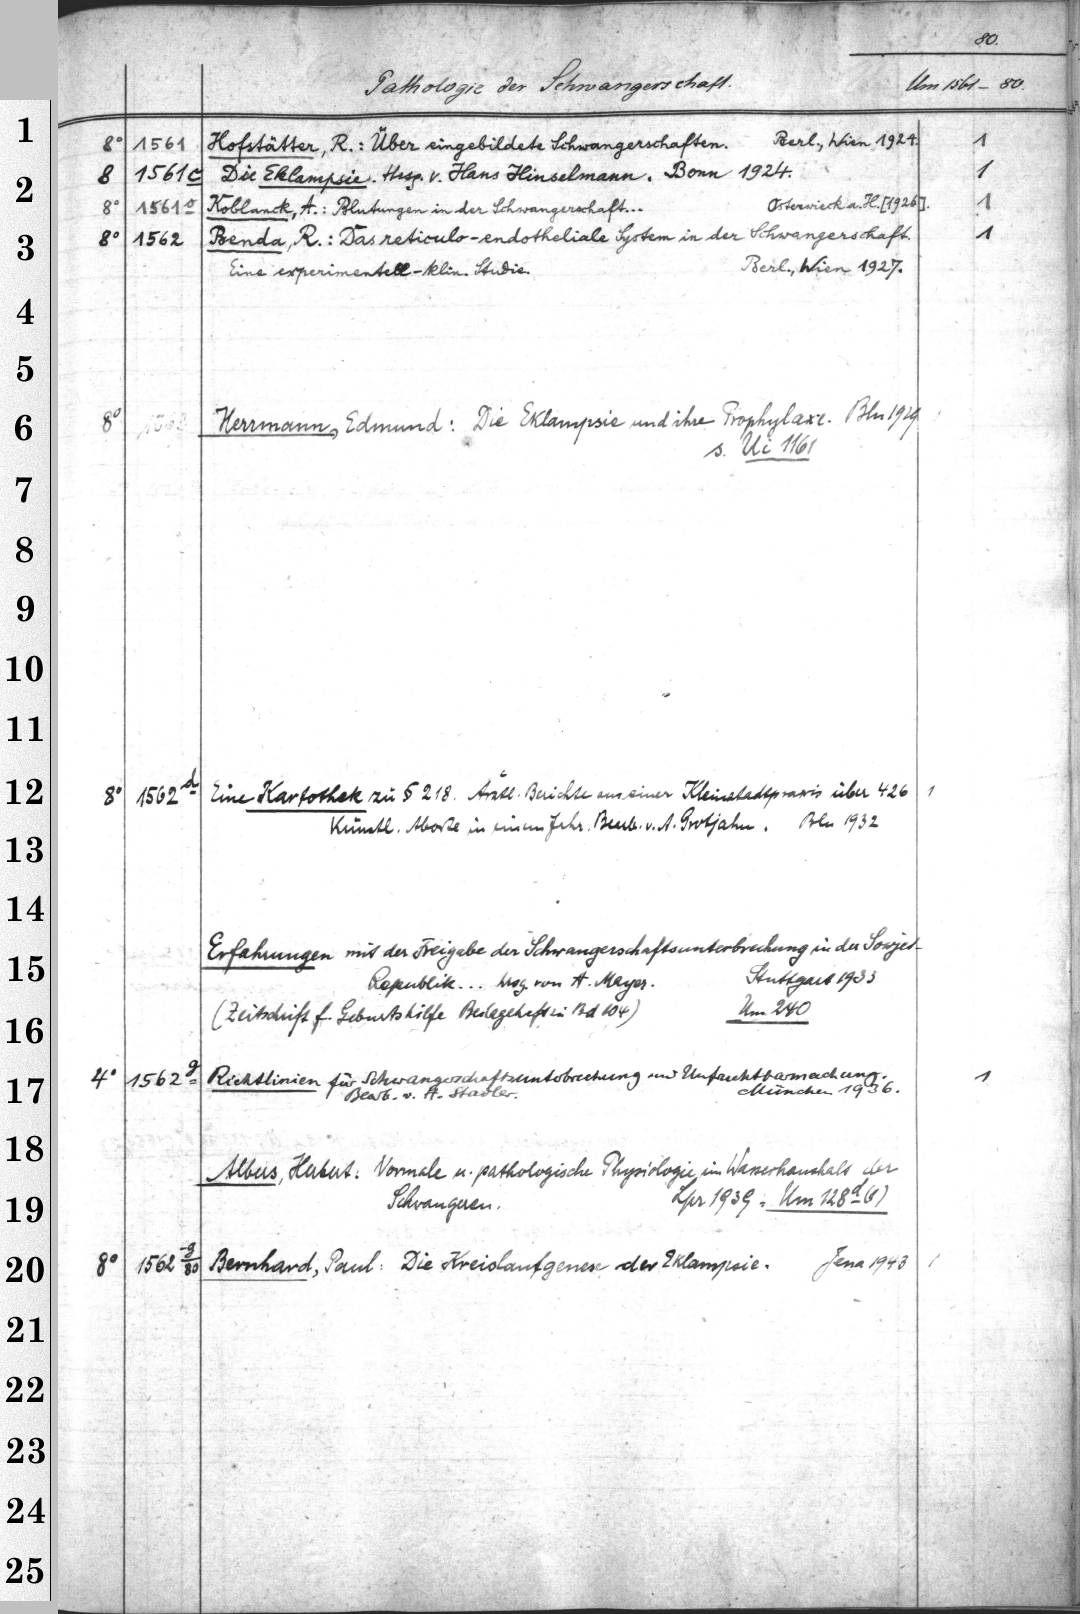 80.
Pathologie der Schwangerschaft. Um 1561 – 80.
1 8° 1561 Hofstätter, R.: Über eingebildete Schwangerschaften. Berl., Wien 1924. 1
2 8 1561c Die Eklampsie. Hrsg. v. Hans Hinselmann. Bonn 1924. 1
8° 1561e Koblanck, A.: Blutungen in der Schwangerschaft... Osterwieck a. H. [1926]. 1
3 8° 1562 Benda, R.: Das reticulo-endotheliale System in der Schwangerschaft. 1
Eine experimentell-klin. Studie. Berl., Wien 1927.
4
5
6 8° 1562 Herrmann, Edmund: Die Eklampsie und ihre Prophylaxe. Bln 1929
s. Ui 1161
7
8
9
10
11
12 8° 1562d Eine Kartothek zu § 218. Ärztl. Berichte aus einer Kleinstadtpraxis über 426 1
Künstl. Aborte in einem Jahr. Bearb. v. A. Grotjahn. Bln 1932
13
14
Erfahrungen mit der Freigabe der Schwangerschaftsunterbrechung in der Sowjet-
15 Republik... hrsg. von A. Mayer. Stuttgart 1933
16 (Zeitschrift f. Geburtshilfe Beilageheft zu Bd 104) Um 240
17 4° 1562g Richtlinien für Schwangerschaftsunterbrechung und Unfruchtbarmachung. 1
Bearb. v. H. Stadler. München 1936.
18
Albers, Hubert: Normale u. pathologische Physiologie im Wasserhaushalt der
19 Schwangeren. Lpz 1939. Um 128d(8)
20 8° 1562 g/80 Bernhard, Paul: Die Kreislaufgenese der Eklampsie. Jena 1943 1
21
22
23
24
25